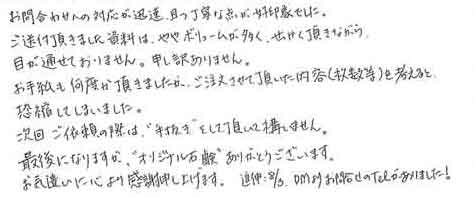 お問合わせへの対応が迅速、且つ丁寧な点が好印象でした。
ご送付頂きました資料は、ややボリュームが多く、せかく頂きながら、
目が通せておりません。申し訳ありません。
お手紙も何度か頂きましたが、ご注文させて頂いた内容(枚数等)を考えると、
恐縮してしまいました。
次回ご依頼の際は、"手抜き"をして頂いて構いません。
最後になりますが、"オリジナル石鹸"ありがとうございます。
お気遣いに心より感謝申し上げます。 追伸:8/3、DMよりお問合せのTelがありました!